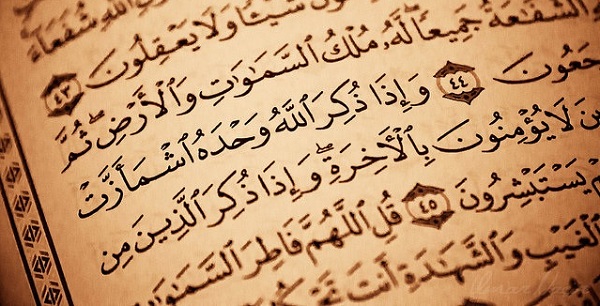 شُفَعَآءَ
شَيْـًٔا وَلَا يَعْقِلُونَ ٤٣
ٱلشَّفَٰعَةُ جَمِيعًا ۖ لَّهُۥ مُلْكُ ٱلسَّمَٰوَٰتِ وَٱلْأَرْضِ ۖ ثُمَّ
جَعُونَ ٤٤ وَإِذَا ذُكِرَ ٱللَّهُ وَحْدَهُ ٱشْمَأَزَّتْ
ينَ لَا يُؤْمِنُونَ بِٱلْأَخِرَةِ ۖ وَإِذَا ذُكِرَ ٱلَّذِينَ مِن
يَسْتَبْشِرُونَ ٤٥ قُلِ ٱللَّهُمَّ فَاطِرَ ٱلسَّمَٰوَٰ
ٱلْغَيْبِ وَٱلشَّهَٰدَةِ أَنتَ تَحْكُ